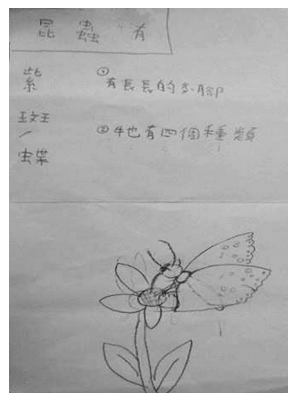 昆蟲有
紫斑蝶
①有長長的刺腳
②牠也有四個種類